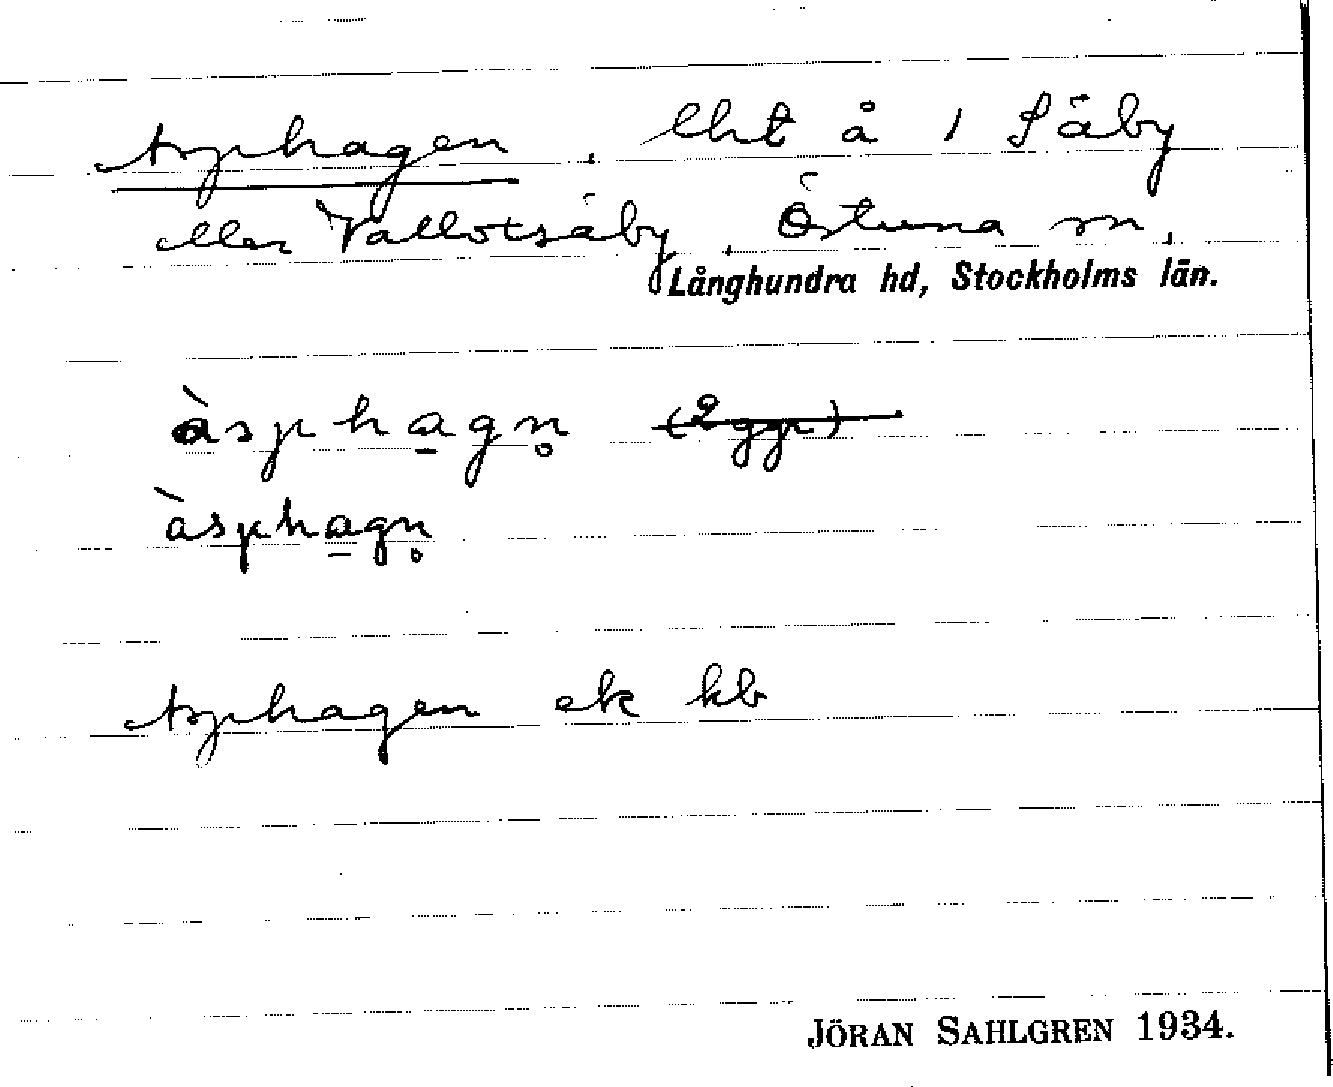 Asphagen, lht å 1 Säby
eller Vallotsäby, Östuna sn,
Långhundra hd, Stockholms län.
àsphagn̥ (2 ggr)
àsphagn̥
Asphagen ek kb
JÖRAN SAHLGREN 1934.